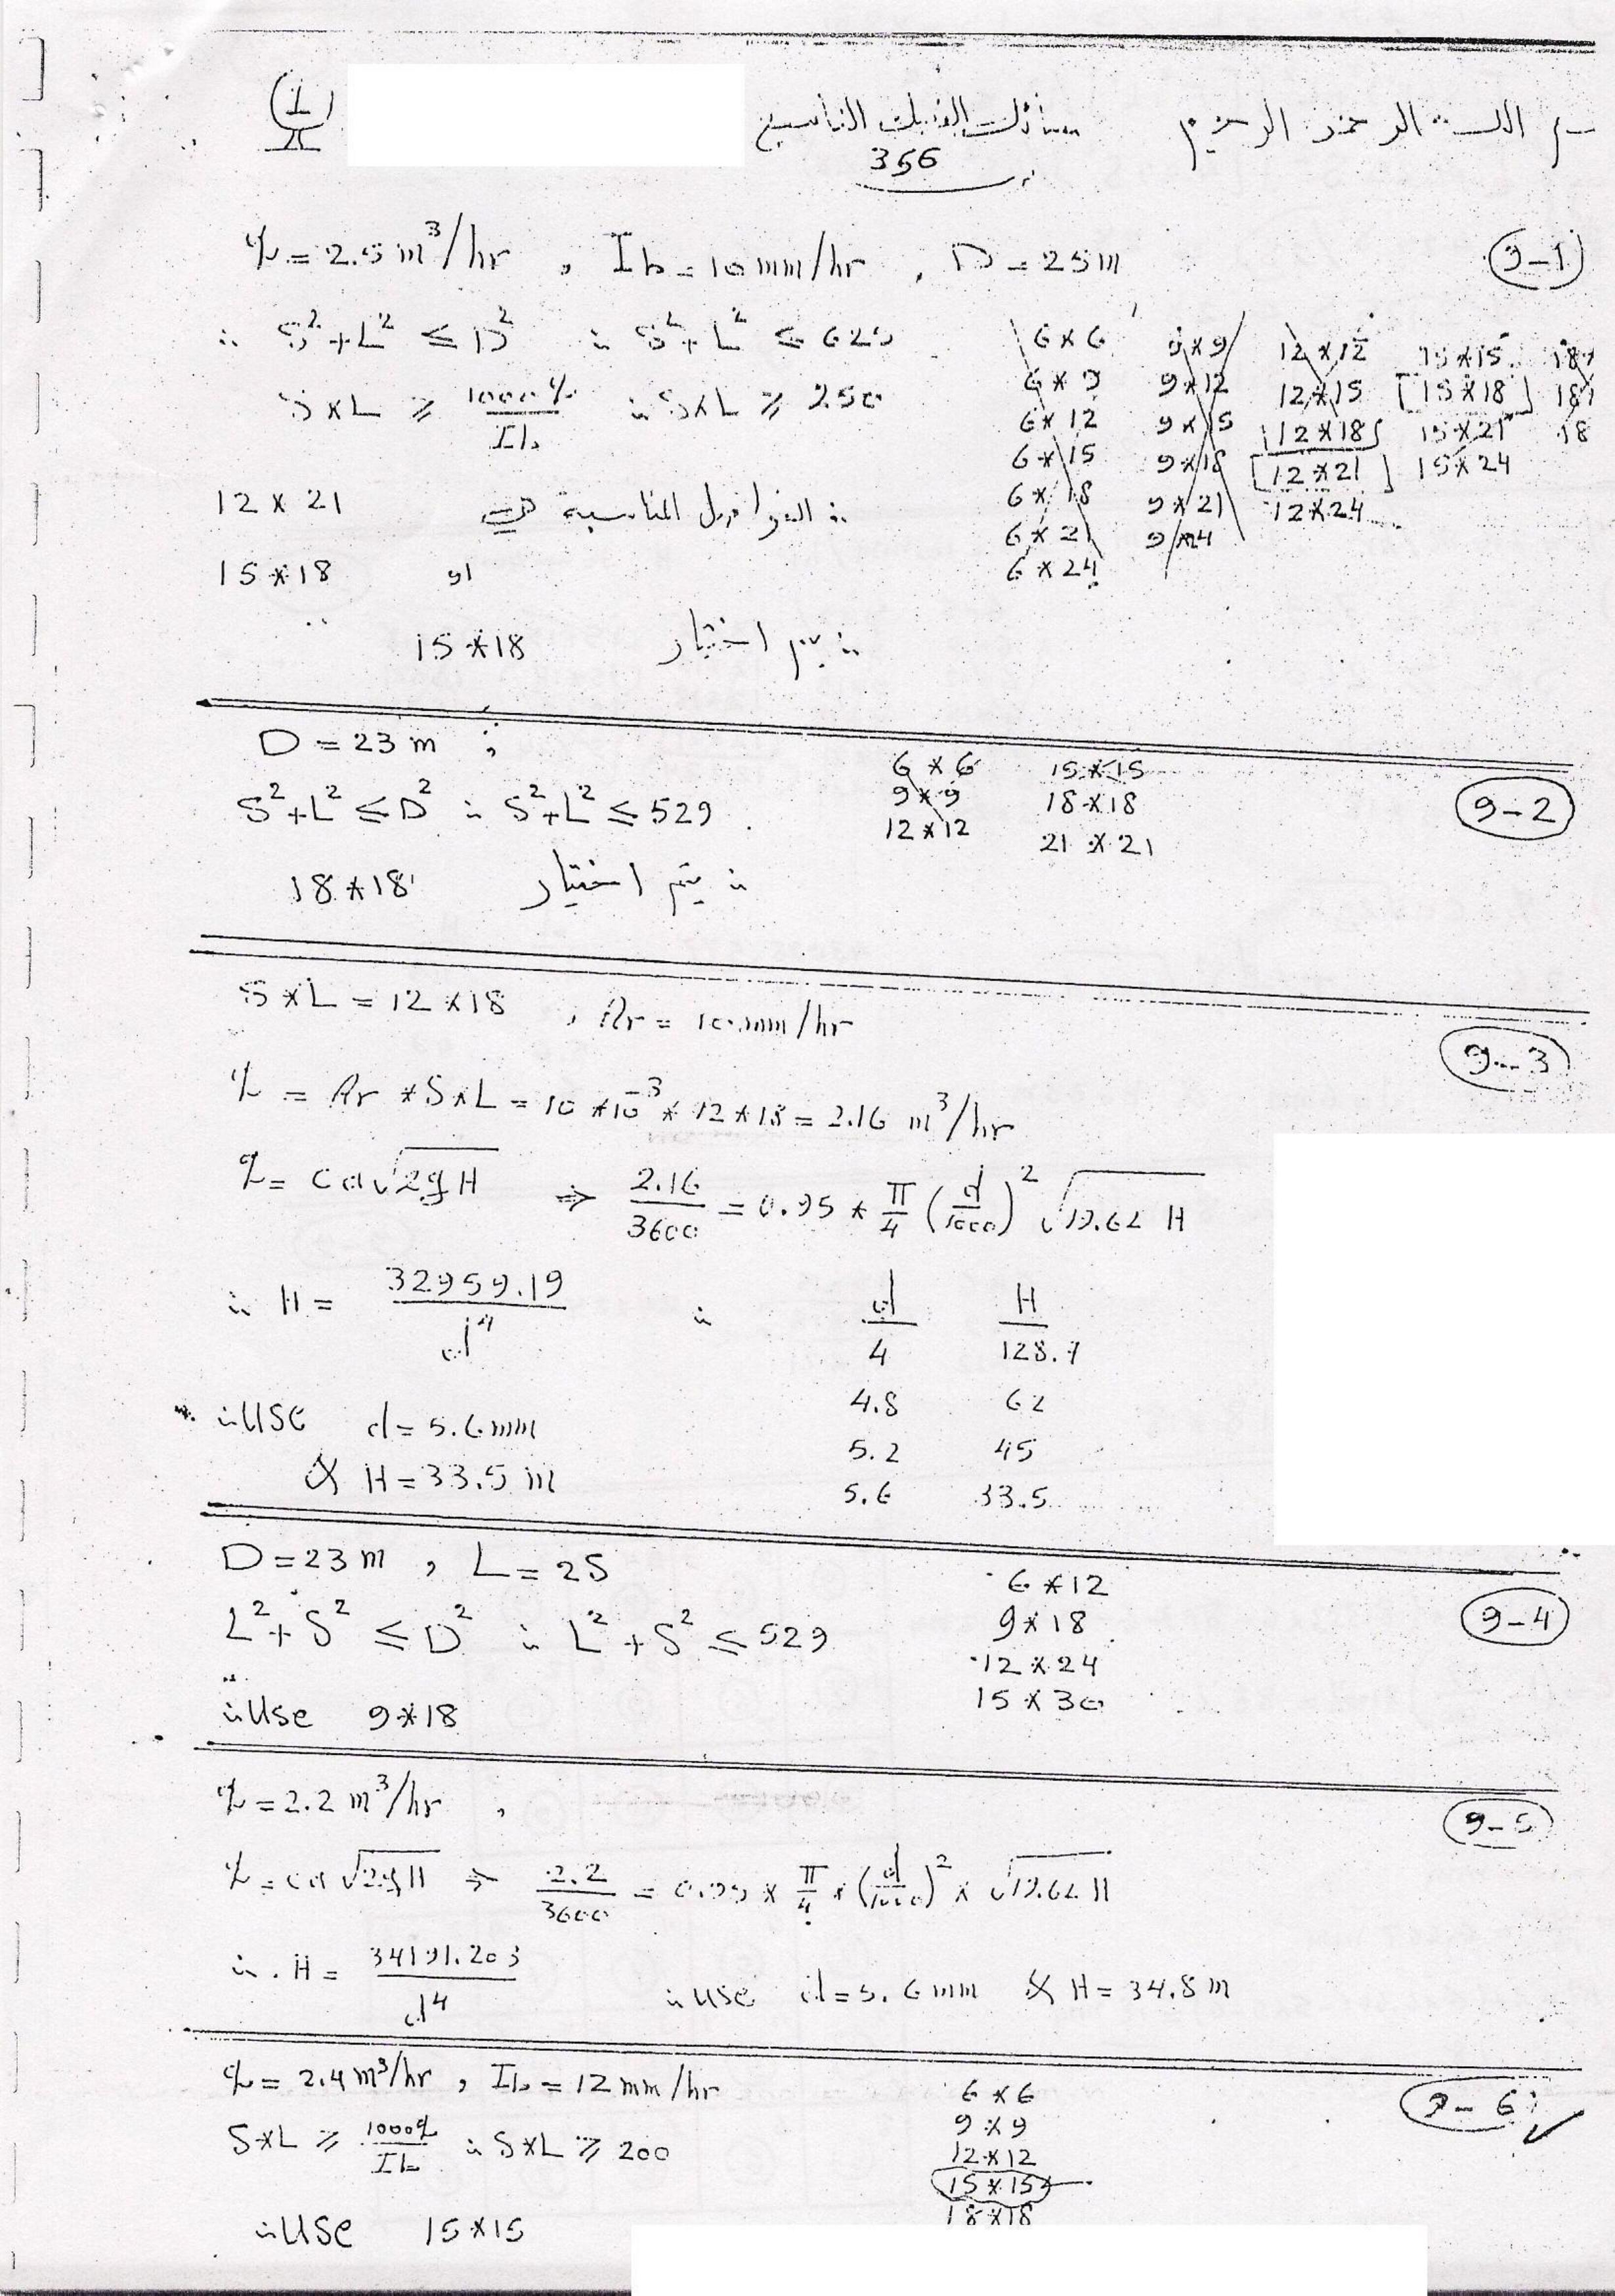 1
بسم الله الرحمن الرحيم
مسائل الباب التاسع
356
9-1
q = 2.5 m³/hr , Ib = 10 mm/hr , D = 25 m
∴ S² + L² ≤ D² ∴ S² + L² ≤ 625
S*L ≥ 1000q / Ib ∴ S*L ≥ 250
6*6 9*9 12*12 15*15 18*
6*9 9*12 12*15 [15*18] 18*
6*12 9*15 12*18 15*21 18
6*15 9*18 [12*21] 15*24
6*18 9*21 12*24
6*21 9*24
6*24
∴ الفواصل المناسبة هي 12 * 21
او 15*18
∴ يتم اختيار 15*18
9-2
D = 23 m ;
S² + L² ≤ D² ∴ S² + L² ≤ 529
6*6 15*15
9*9 18*18
12*12 21*21
∴ يتم اختيار 18*18
9-3
S*L = 12*18 , Ar = 10 mm/hr
q = Ar * S*L = 10 * 10⁻³ * 12 * 18 = 2.16 m³/hr
q = ca√2gH ⇒ 2.16 / 3600 = 0.95 * π/4 (d/1000)² √19.62 H
∴ H = 32959.19 / d⁴ ∴
d H
4 128.7
4.8 62
5.2 45
5.6 33.5
∴ USE d = 5.6 mm
& H = 33.5 m
9-4
D = 23 m , L = 2S
L² + S² ≤ D² ∴ L² + S² ≤ 529
6*12
9*18
12*24
15*30
∴ Use 9*18
9-5
q = 2.2 m³/hr ,
q = ca √2gH ⇒ 2.2 / 3600 = 0.95 * π/4 * (d/1000)² * √19.62 H
∴ H = 34191.203 / d⁴ ∴ use d = 5.6 mm & H = 34.8 m
9-6
q = 2.4 m³/hr , Ib = 12 mm/hr
S*L ≥ 1000q / Ib ∴ S*L ≥ 200
6*6
9*9
12*12
15*15
18*18
∴ USE 15*15